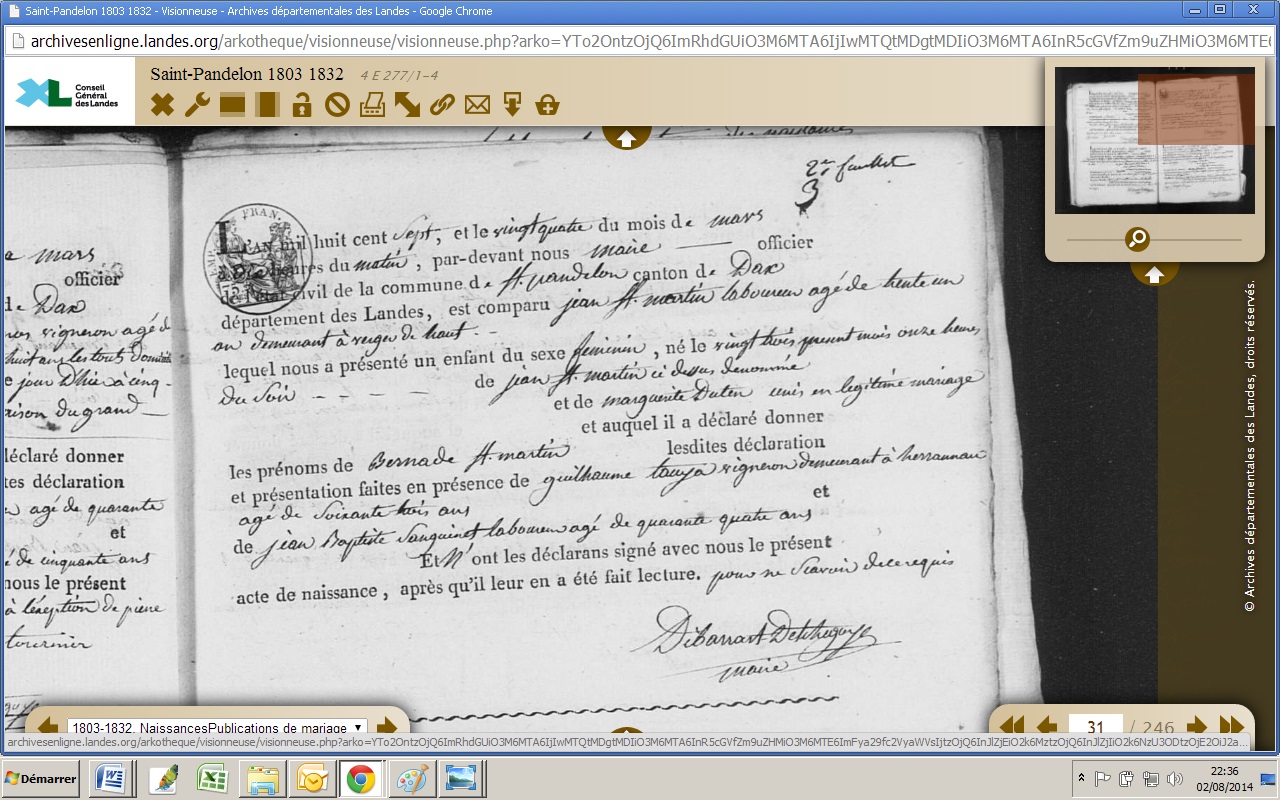 Saint-Pandelon 1803 1832 - Visionneuse - Archives départementales des Landes - Google Chrome
archivesenligne.landes.org/arkotheque/visionneuse/visionneuse.php?arko=
XL Conseil
Général
des Landes
Saint-Pandelon 1803 1832 4 E 277/1-4
2eme feuillet
3
EMP. FRAN.
L'AN mil huit cent sept, et le vingt quatre du mois de mars
heures du matin, par-devant nous maire officier
de l'état civil de la commune de St. pandelon canton de Dax
département des Landes, est comparu jean St. martin laboureur agé de trente un
an demeurant à verger de haut
lequel nous a présenté un enfant du sexe feminin, né le vingt trois present mois onze heures
du soir de jean St. martin ci dessus denommé
et de marguerite Duten unis en legitime mariage
et auquel il a déclaré donner
les prénoms de Bernade St. martin lesdites déclaration
et présentation faites en présence de guilhaume tauza vigneron demeurant à
agé de soixante trois ans et
de jean Baptiste Sanguinet laboureur agé de quarante quatre ans
Et N'ont les déclarans signé avec nous le présent
acte de naissance, après qu'il leur en a été fait lecture. pour ne scavoir de ce requis
maire
mars
officier
de Dax
vigneron agé d
huit ans les touts
jour D'hier à cinq
maison du grand
déclaré donner
tes déclaration
agé de quarante
et
é de cinquante ans
nous le présent
à l'exception de piere
© Archives départementales des Landes, droits réservés.
1803-1832, NaissancesPublications de mariage
31 / 246
archivesenligne.landes.org/arkotheque/visionneuse/visionneuse.php?arko=
Démarrer
22:36
02/08/2014